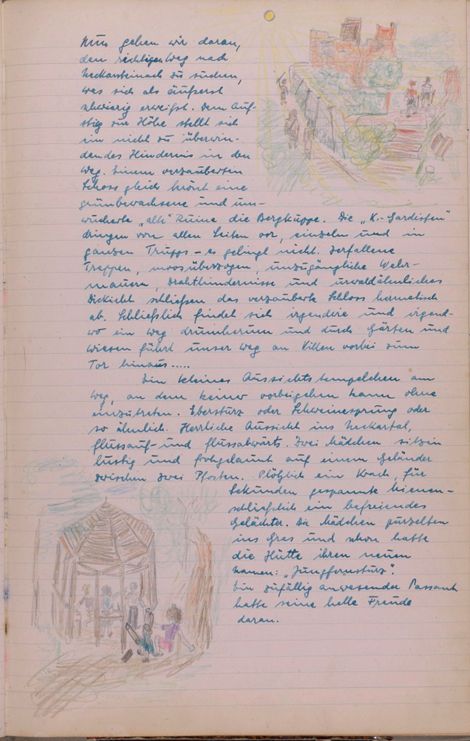 Nun gehen wir daran,
den richtigen Weg nach
Neckarsteinach zu suchen,
was sich als äußerst
schwierig erweist. Dem Auf-
stieg zur Höhe stellt sich
ein nicht zu überwin-
dendes Hindernis in den
Weg. Einem verzauberten
Schloss gleich krönt eine
grünbewachsene und um-
wucherte „alte" Ruine die Bergkuppe. Die „K.-Gardisten"
dringen von allen Seiten vor, einzeln und in
ganzen Trupps - es gelingt nicht. Zerfallene
Treppen, moosüberzogen, unzugängliche Wehr-
mauern, Drahthindernisse und urwaldähnliches
Dickicht schließen das verzauberte Schloss hermetisch
ab. Schließlich findet sich irgendwie und irgend-
wo ein Weg drumherum und durch Gärten und
Wiesen führt unser Weg an Villen vorbei zum
Tor hinaus.....
Ein kleines Aussichtstempelchen am
Weg, an dem keiner vorbeigehen kann ohne
einzutreten. Ebersturz oder Schweinesprung oder
so ähnlich. Herrliche Aussicht ins Neckartal,
flussauf- und flussabwärts. Zwei Mädchen sitzen
lustig und frohgelaunt auf einem Geländer
zwischen zwei Pfosten. Plötzlich ein Krach, für
Sekunden gespannte Mienen -
schließlich ein befreiendes
Gelächter. Die Mädchen purzelten
ins Gras und schon hatte
die Hütte ihren neuen
Namen: „Jungfernsturz".
Ein zufällig anwesender Passant
hatte seine helle Freude
daran.